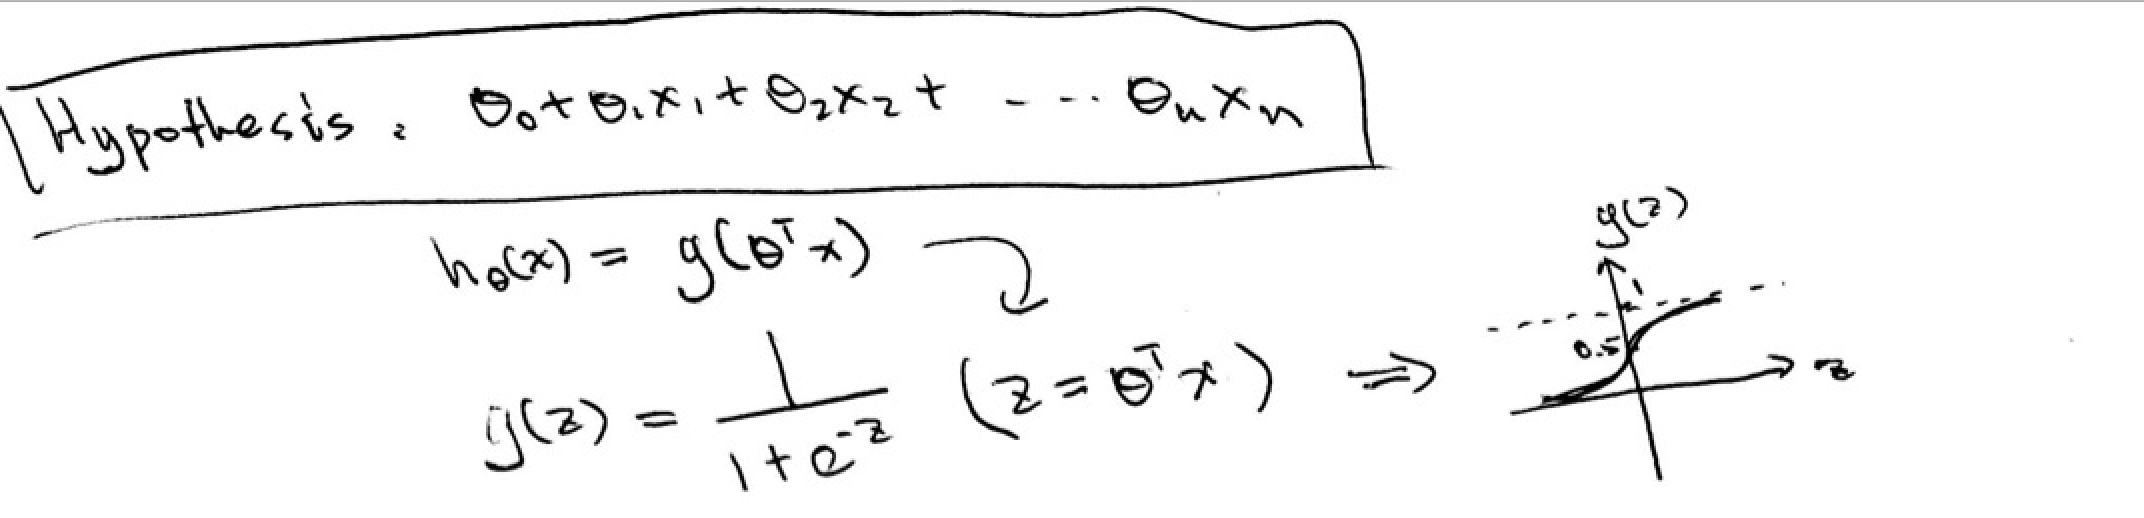 Hypothesis : θ₀ + θ₁x₁ + θ₂x₂ + - - - · · θₙxₙ
h_θ(x) = g(θᵀx)
g(z) = 1 / (1 + e⁻ᶻ) (z = θᵀx) ⇒
g(z)
1
0.5
z